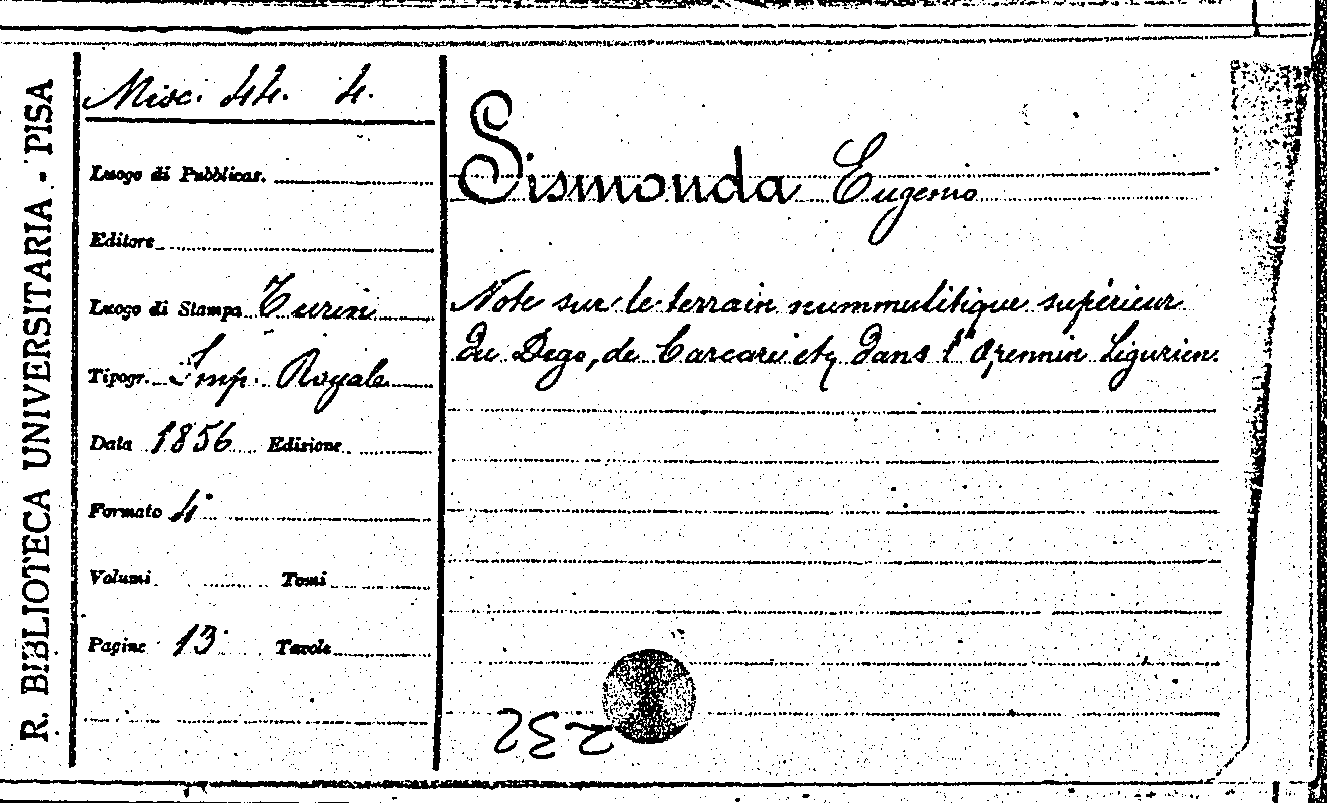 R. BIBLIOTECA UNIVERSITARIA - PISA
Misc. 44. 4.
Luogo di Pubblicaz.
Editore
Luogo di Stampa Turin
Tipogr. Imp. Royale
Data 1856 Edizione
Formato 4°
Volumi Tomi
Pagine 13 Tavole
Sismonda Eugenio
Note sur le terrain nummulitique supérieur
du Dego, de Carcare etc, dans l'Apennin Ligurien.
232